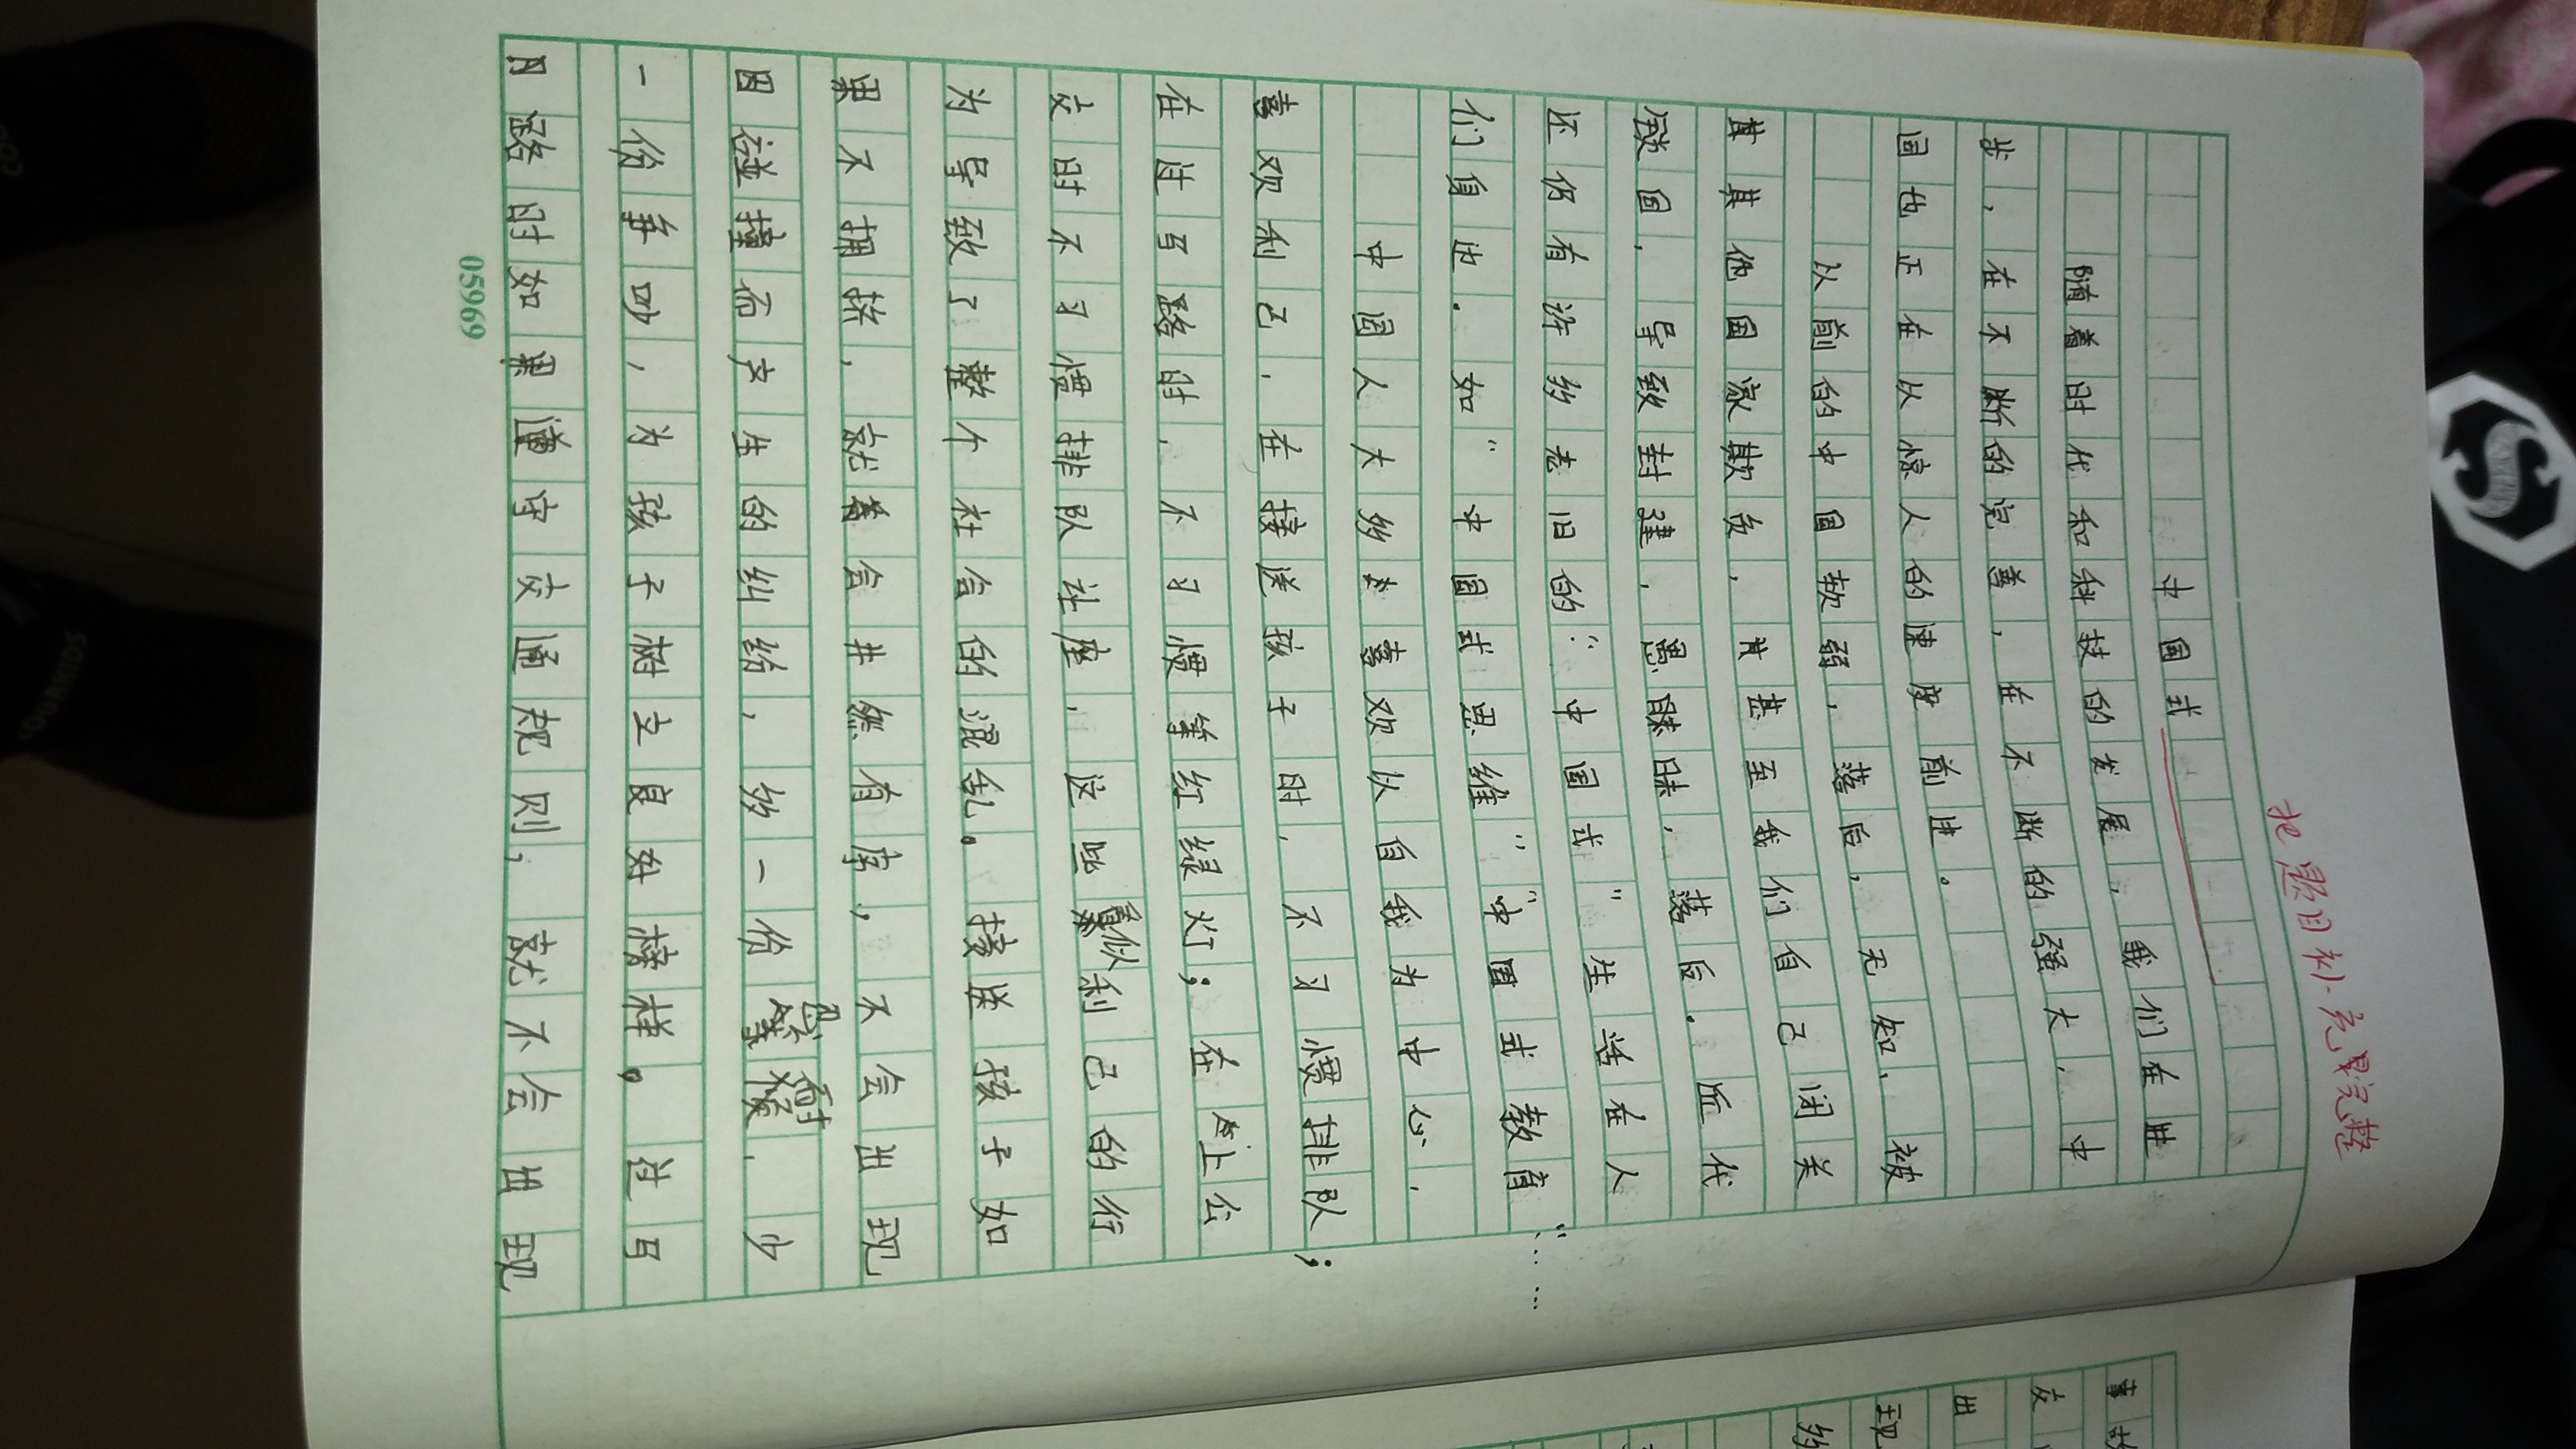 把题目补充完整
中国式
随着时代和科技的发展，我们在进
步，在不断的完善，在不断的强大，中
国也正在从惊人的速度前进。
以前的中国软弱，落后，无知，被
其其他国家欺负，甚至我们自己闭关
锁国，导致封建，愚昧，落后．近代
还仍有许多老旧的“中国式”生活在人
们身边．如“中国式思维”“中国式教育”……
中国人大多喜欢以自我为中心，
喜欢利己，在接送孩子时，不习惯排队；
在过马路时，不习惯等红绿灯；在上公
交时不习惯排队让座，这些看似利己的行
为导致了整个社会的混乱。接送孩子如
果不拥挤，就会井然有序，不会出现
因碰撞而产生的纠纷，多一份忍耐，少
一份争吵，为孩子树立良好榜样。过马
路时如果遵守交通规则，就不会出现
05969
事故
交
出
现